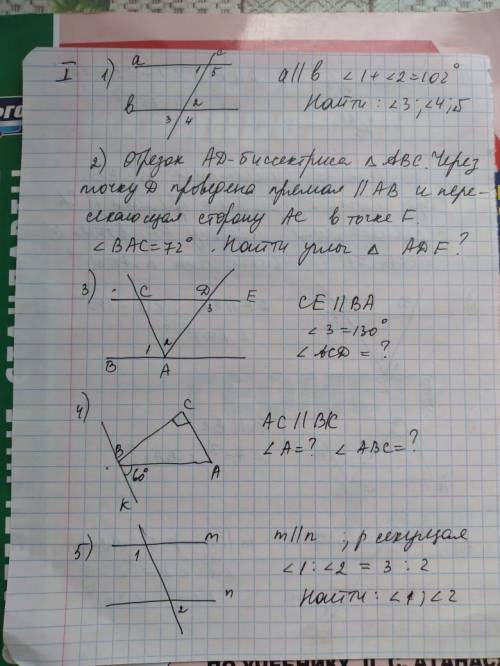 I 1) a c 1 5 a ∥ в ∠1+∠2=102°
в 2 3 4 Найти: ∠3; ∠4; 5
2) Отрезок AD-биссектриса △ ABC. Через
точку D проведена прямая ∥ AB и пере-
секающая сторону AC в точке F.
∠BAC=72°. Найти углы △ ADF?
3) C D E 3 CE ∥ BA
∠3=130°
1 2 ∠ACD = ?
B A
4) C AC ∥ BK
B 60° A ∠A=? ∠ABC=?
K
5) m 1 m∥n ; p секущая
∠1 : ∠2 = 3 : 2
n 2 Найти: ∠1; ∠2
ПО УЧЕБНИКУ Л. С. АТАНАС